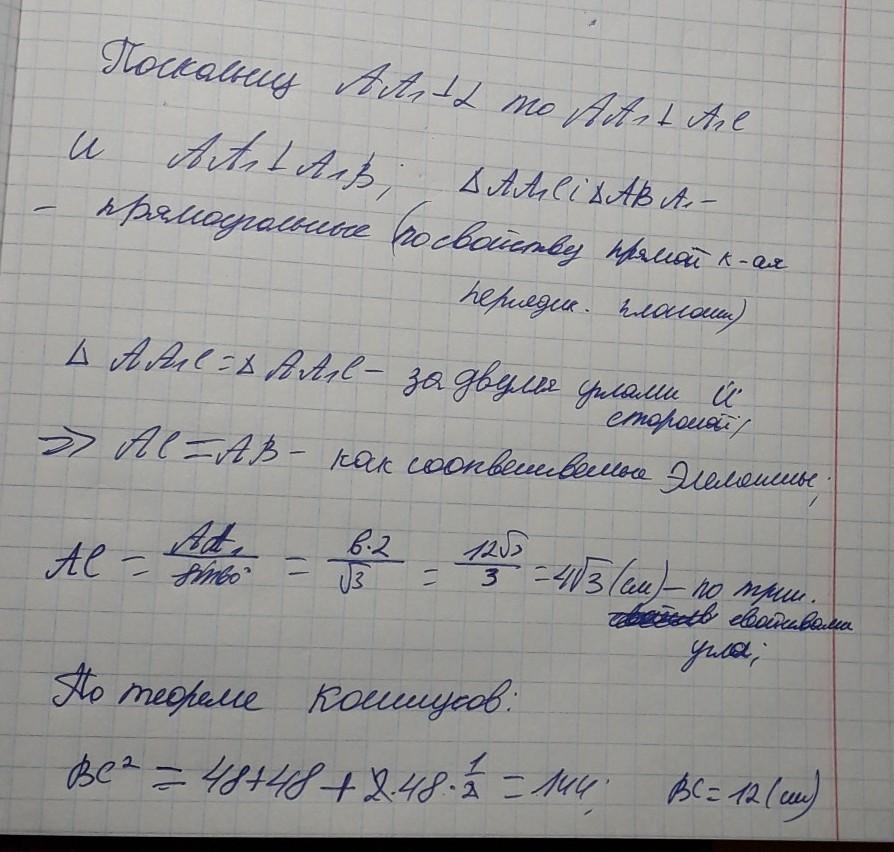 Поскольку AA₁⊥α то AA₁⊥A₁C
и AA₁⊥A₁B; ΔAA₁C i ΔABA₁-
- прямоугольные (по свойству прямой к-ая
перпедик. плоскости)
Δ AA₁C = Δ AA₁C - за двумя углами и
стороной;
=> AC = AB - как соответственные элементы;
AC = AA₁/sin60° = 6·2/√3 = 12√3/3 = 4√3 (см) - по триг.
свойствами
угла;
По теореме косинусов:
BC² = 48+48+2·48·1/2 = 144; BC = 12 (см)